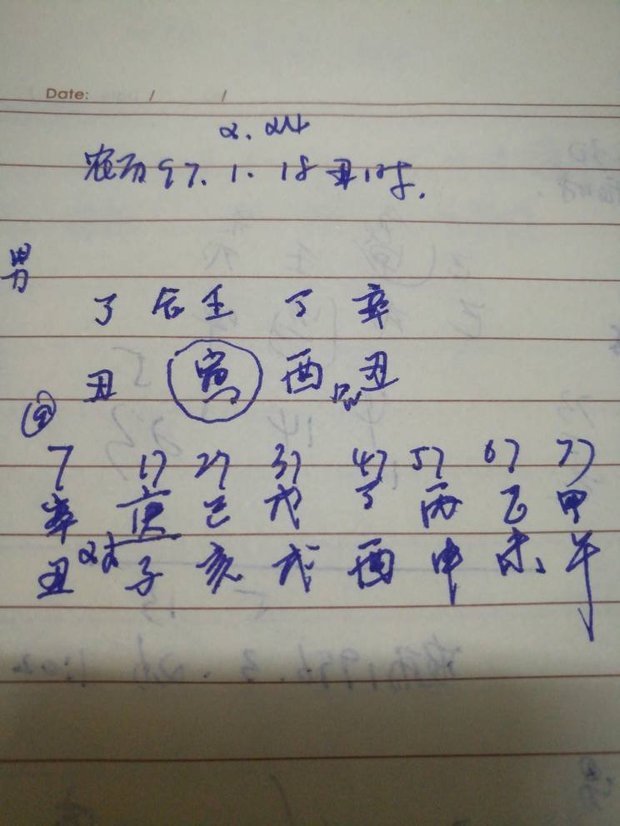 Date: / /
2.24
农历97.1.18丑时.
男
丁 壬 丁 辛
丑 寅 酉 丑
7 17 27 37 47 57 67 77
辛 庚 己 戊 丁 丙 乙 甲
丑 子 亥 戌 酉 申 未 午